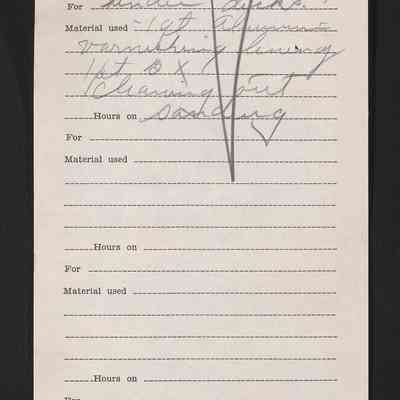 For under decks.
Material used - 1 qt Aluminum
varnishing lining
1 pt B X
Cleaning out
Hours on sanding
For
Material used
Hours on
For
Material used
Hours on
For